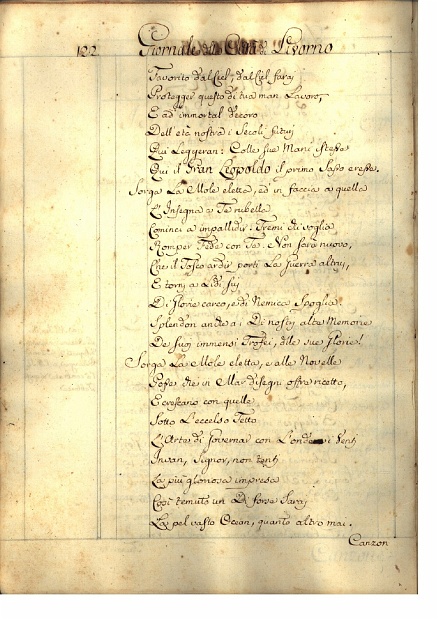 122 Giornale della Città di Livorno
Favorito dal Ciel, dal Ciel farai
Protegger questo di tua man Lavoro,
E ad immortal decoro
Dell'età nostra i Secoli futuri
Qui Leggeran: Colle sue Mani istesse
Qui il Gran Leopoldo il primo Sasso eresse.
Sorga La Mole eletta, ed in faccia a quella
L'Insegna a Te rubella
Cominci a impallidir: Tremi di voglia
Romper Fede con Te: Non sarà nuovo,
Che il Tosco ardir porti La guerra altrui,
E torni a Lidi sui
Di Glorie carco, e di Nemica Spoglia.
Splendon anche a i Dì nostri alte Memorie
De suoi immensi Trofei, delle sue Glorie!
Sorga La Mole eletta, e alle Novelle
che in Mar disegni offra ricetto,
E crescano con quelle
Sotto L'eccelso Tetto
L'Arte di Governar con L'onde i Venti
Invan, Signor, non tenti
La più gloriosa impresa
Così temuto un Dì forse Sarai
Ex pel vasto Ocean, quanto altro mai.
Canzon